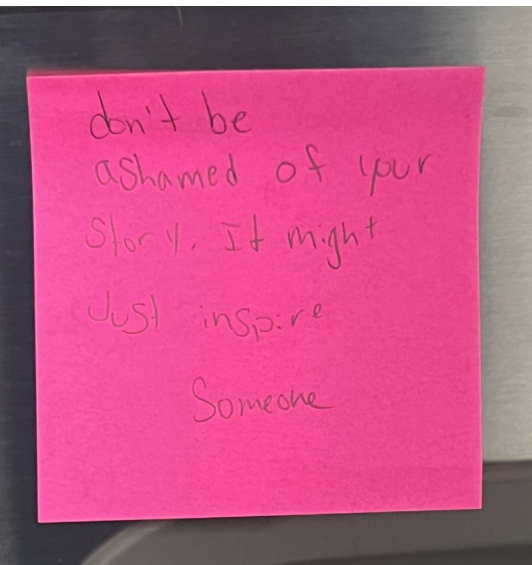 don't be
ashamed of your
story. It might
Just inspire
Someone